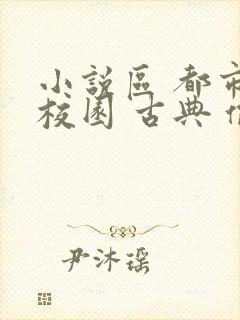 小說區 都市
校園 古典
尹沐瑶